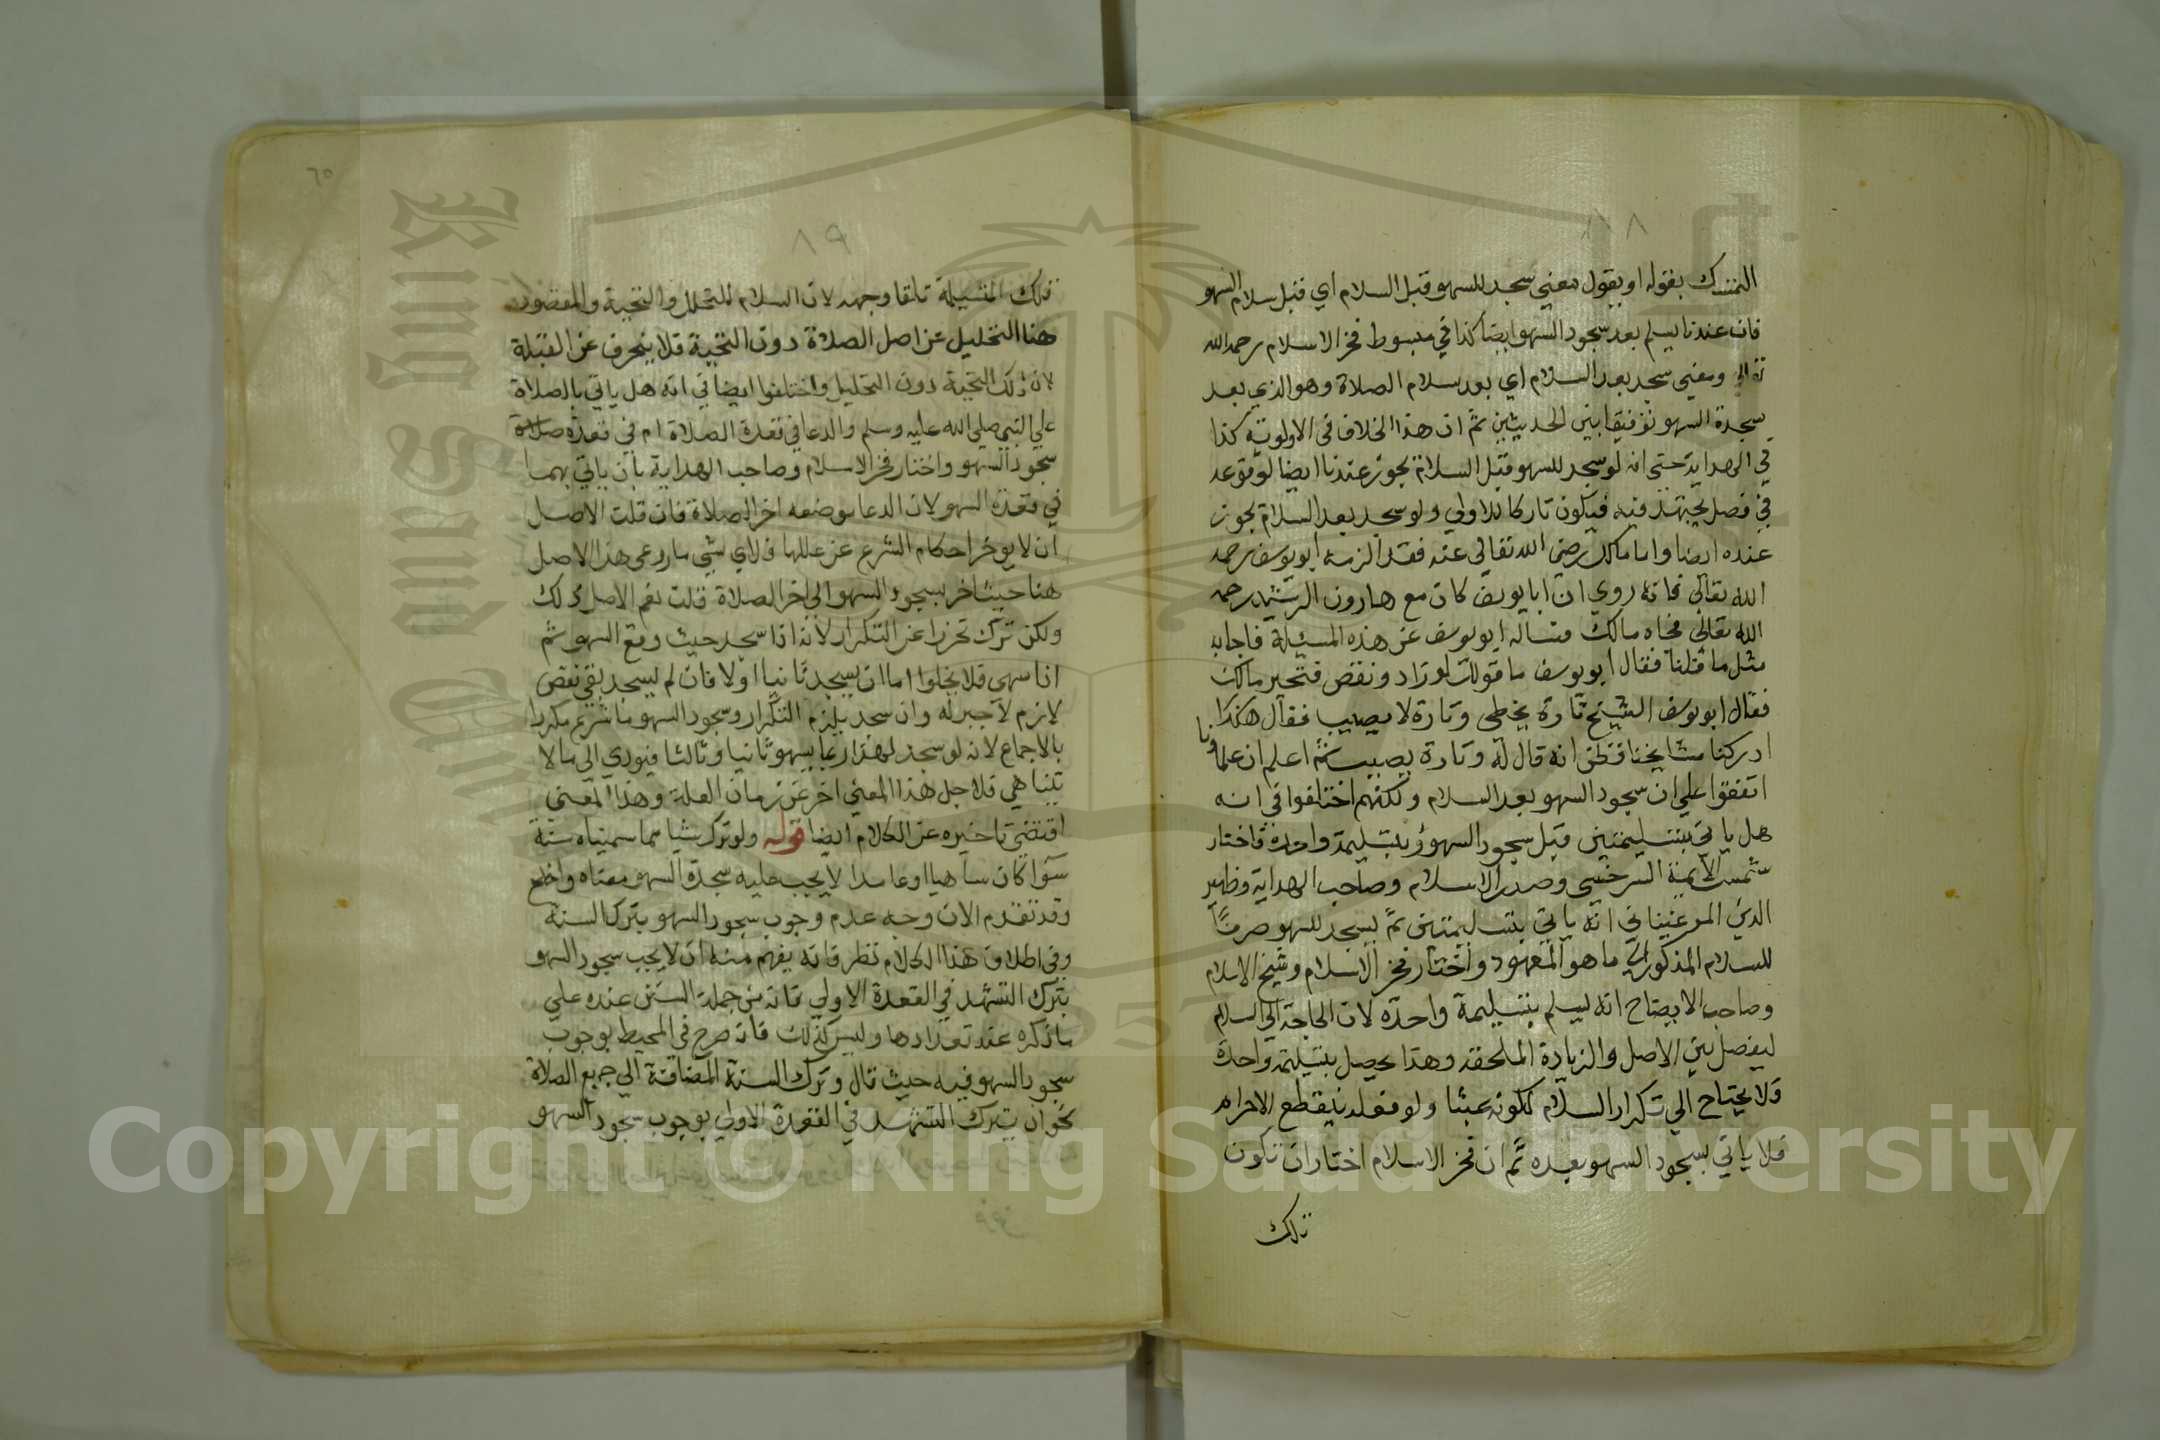 ٨٨
التمسك بقوله او بقول معني سجد للسهو قبل السلام اي قبل سلام السهو
فان عندنا يسلم بعد سجود السهو ايضا كذا في مبسوط فخر الاسلام رحمه الله
تعالي ومعني سجد بعد السلام اي بعد سلام الصلاة وهو الذي بعد
سجدة السهو توفيقا بين الحديثين ثم ان هذا الخلاف في الاولوية كذا
في الهداية حتي انه لو سجد للسهو قبل السلام يجوز عندنا ايضا لوقوعه
في فصل مجتهد فيه فيكون تاركا للاولي ولو سجد بعد السلام يجوز
عنده ايضا واما مالك رضي الله تعالي عنه فقد الزمه ابو يوسف رحمه
الله تعالي فانه روي ان ابا يوسف كان مع هارون الرشيد رحمه
الله تعالي فجاه مالك فساله ابو يوسف عن هذه المسئلة فاجابه
مثل ما قلنا فقال ابو يوسف ما قولك لو زاد ونقص فتحير مالك
فقال ابو يوسف الشيخ تارة يخطي وتارة لا يصيب فقال هكذا
ادركنا مشايخنا فظن انه قال له وتارة يصيب ثم اعلم ان علماونا
اتفقوا علي ان سجود السهو بعد السلام ولكنهم اختلفوا في انه
هل ياتي بتسليمتين قبل سجود السهو او بتسليمة واحدة فاختار
شمس الايمة السرخسي وصدر الاسلام وصاحب الهداية وظهير
الدين المرغيناني انه ياتي بتسليمتين ثم يسجد للسهو صرفا
للسلام المذكور الي ما هو المعهود واختار فخر الاسلام وشيخ الاسلام
وصاحب الايضاح انه يسلم بتسليمة واحدة لان الحاجة الي السلام
ليفصل بين الاصل والزيادة الملحقة وهذا يحصل بتسليمة واحدة
فلا يحتاج الي تكرار السلام لكونه عبثا ولو فعله ينقطع الاحرام
فلا ياتي بسجود السهو بعده ثم ان فخر الاسلام اختار ان تكون
تلك
٦٥
٨٩
تلك التسليمة تلقا وجهه لان السلام للتحلل والتحية والمقصود
هنا التحليل عن اصل الصلاة دون التحية فلا ينحرف عن القبلة
لان ذلك التحية دون التحليل واختلفوا ايضا في انه هل ياتي بالصلاة
علي النبي صلي الله عليه وسلم والدعا في قعدة الصلاة ام في قعدة صلاة
سجود السهو واختار فخر الاسلام وصاحب الهداية بان ياتي بهما
في قعدة السهو لان الدعا موضعه اخر الصلاة فان قلت الاصل
ان لا يوخر احكام الشرع عن عللها فلاي شي ما روعي هذا الاصل
هنا حيث اخر سجود السهو الي اخر الصلاة قلت نعم الاصل ذلك
ولكن ترك تحرزا عن التكرار لانه اذا سجد حيث وقع السهو ثم
اذا سهي فلا يخلوا اما ان يسجد ثانيا اولا فان لم يسجد بقي نقص
لازم لا جبر له وان سجد يلزم التكرار وسجود السهو ما شرع مكررا
بالاجماع لانه لو سجد لهذا ربما يسهو ثانيا وثالثا فيودي الي ما لا
يتناهي فلاجل هذا المعني اخر عن زمان العلة وهذا المعني
اقتضي تاخيره عن الكلام ايضا قوله ولو ترك شيا مما سميناه سنة
سوا كان ساهيا او عامدا لا يجب عليه سجدة السهو معناه واضح
وقد تقدم الان وجه عدم وجوب سجود السهو بترك السنة
وفي اطلاق هذا الكلام نظر فانه يفهم منه ان لا يجب سجود السهو
بترك التشهد في القعدة الاولي فانه من جملة السنن عنده علي
ما ذكره عند تعدادها وليس كذلك فانه صرح في المحيط بوجوب
سجود السهو فيه حيث قال وترك السنة المضافة الي جميع الصلاة
نحو ان يترك التشهد في القعدة الاولي يوجب سجود السهو
Copyright © King Saud University
King Saud University
1957